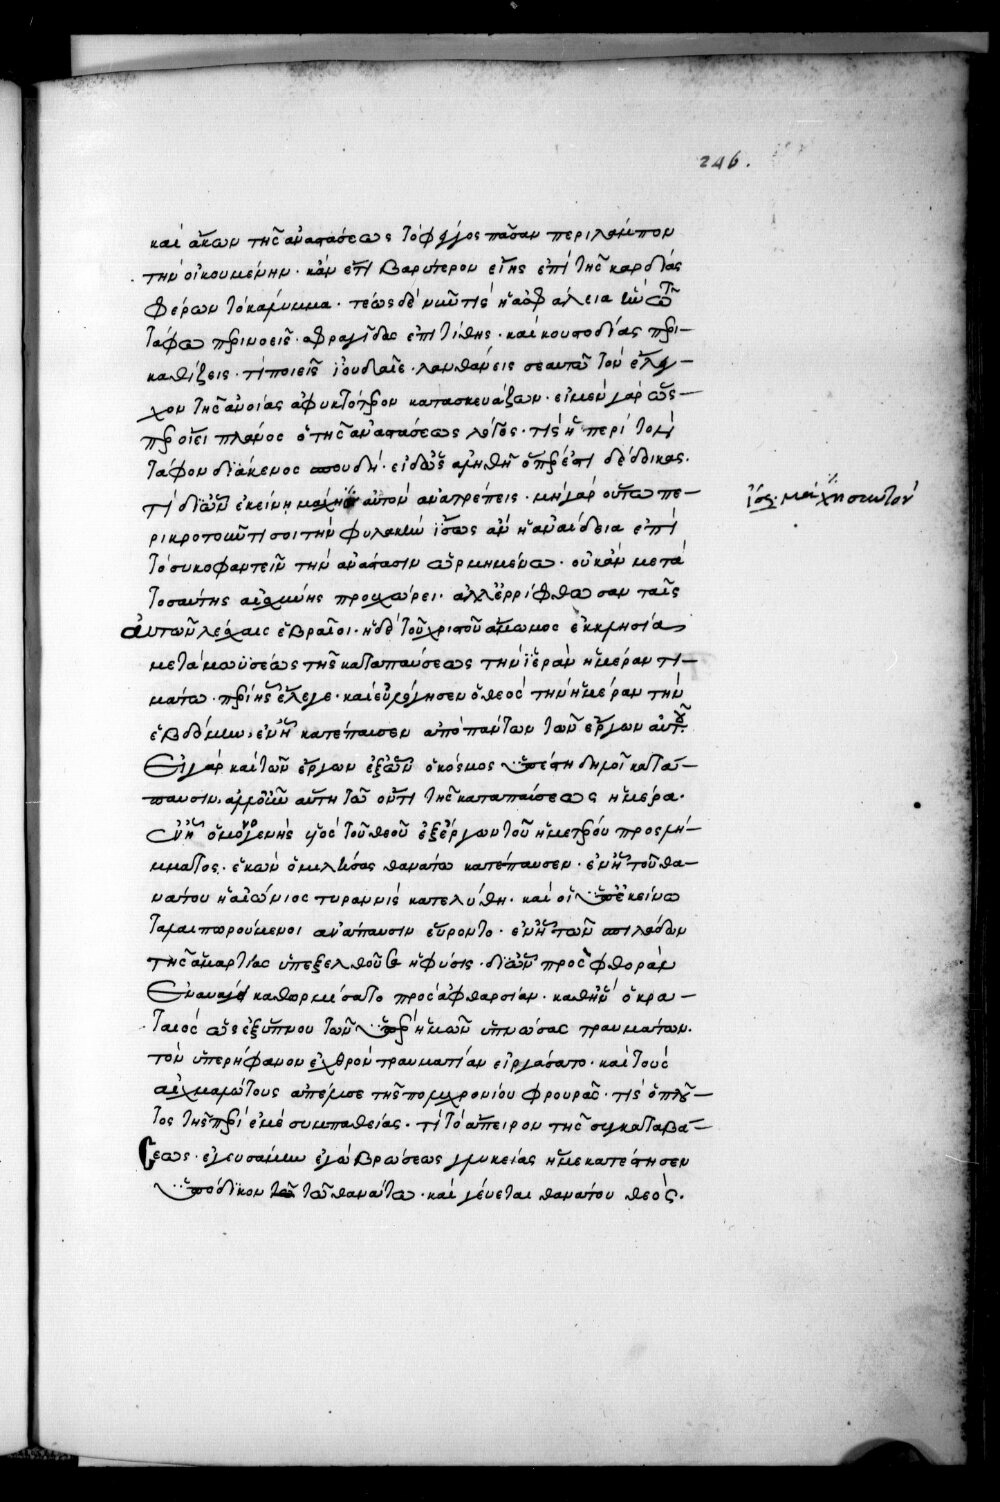 246.
καὶ ἄκων τῆς ἀναστάσεως τὸ φέγγος πᾶσαν περιλάμπον
τὴν οἰκουμένην· κἂν ἔτι βαρύτερον εἴης ἐπὶ τῆς καρδίας
φέρων τὸ κάλυμμα· τέως δὲ νῦν τίς ἡ ἀσφάλεια ἣν τῷ
τάφῳ περινοεῖς· σφραγῖδας ἐπιτίθης· καὶ κουστωδίας περι-
καθίζεις· τί ποιεῖς ἰουδαῖε· λανθάνεις σεαυτῷ τὸν ἔλεγ-
χον τῆς ἀνοίας ἀφυκτότερον κατασκευάζων· εἰ μὲν γὰρ ὥσ-
περ οἴει πλάνος ὁ τῆς ἀναστάσεως λόγος· τίς ἡ περὶ τὸν
τάφον διάκενος σπουδή· εἰ δὲ ἀληθῆ ὅπερ ἔτι δέδοικας·
τί δι' ὧν ἐκείνη μάχη αὐτὸν ἀνατρέπεις· μὴ γὰρ οὕτω πε-
ρικροτοῦντί σοι τὴν φυλακὴν ἴσως ἂν ἡ ἀναίδεια ἐπὶ
τὸ συκοφαντεῖν τὴν ἀνάστασιν ὡρμημένω· οὐκ ἂν μετὰ
τοσαύτης αἰσχύνης προχωρεῖ· ἀλλ' ἐρρίφθωσαν ταῖς
αὐτῶν λέσχαις ἑβραῖοι· ἡ δὲ τοῦ χριστοῦ ἄμωμος ἐκκλησία
μετὰ μωϋσέως τῆς καταπαύσεως τὴν ἱερὰν ἡμέραν τι-
μάτω· περὶ ἧς ἔλεγε· καὶ εὐλόγησεν ὁ θεὸς τὴν ἡμέραν τὴν
ἑβδόμην, ἐν ᾗ κατέπαυσεν ἀπὸ πάντων τῶν ἔργων αὐτοῦ.
Εἰ γὰρ καὶ τῶν ἔργων ἐξ ὧν ὁ κόσμος ὑπέστη δηλοῖ κατά-
παυσιν, ἀλλ' οὖν αὕτη τῷ ὄντι τῆς καταπαύσεως ἡμέρα·
ἐν ᾗ ὁ μονογενὴς υἱὸς τοῦ θεοῦ ἐξ ἔργων τοῦ ἡμετέρου προσλήμ-
ματος· ἑκὼν ὁμιλήσας θανάτῳ κατέπαυσεν· ἐν ᾗ τοῦ θα-
νάτου ἡ αἰώνιος τυραννὶς κατελύθη· καὶ οἱ ὑπ' ἐκείνω
ταλαιπωρούμενοι ἀνάπαυσιν εὕροντο· ἐν ᾗ τῶν σπιλάδων
τῆς ἁμαρτίας ὑπεξελθοῦσα ἡ φύσις· δι' ὧν πρὸς φθορὰν
καθωρμίσατο πρὸς ἀφθαρσίαν· καθ' ἣν ὁ κρα-
ταιὸς ὡς ἐξ ὕπνου τῶν ὑπὲρ ἡμῶν ὑπνώσας τραυμάτων·
τὸν ὑπερήφανον ἐχθρὸν τραυματίαν εἰργάσατο· καὶ τοὺς
αἰχμαλώτους ἀπέλυσε τῆς πολυχρονίου φρουρᾶς· τίς ὁ πλοῦ-
τος τῆς περὶ ἐμὲ συμπαθείας· τί τὸ ἄπειρον τῆς συγκαταβά-
σεως· ἐγευσάμην ἐγὼ βρώσεως γλυκείας ἥ με κατέστησεν
ὑπόδικον τῷ θανάτω· καὶ γεύεται θανάτου θεός.
ἴσ. μάχῃ σεαυτὸν